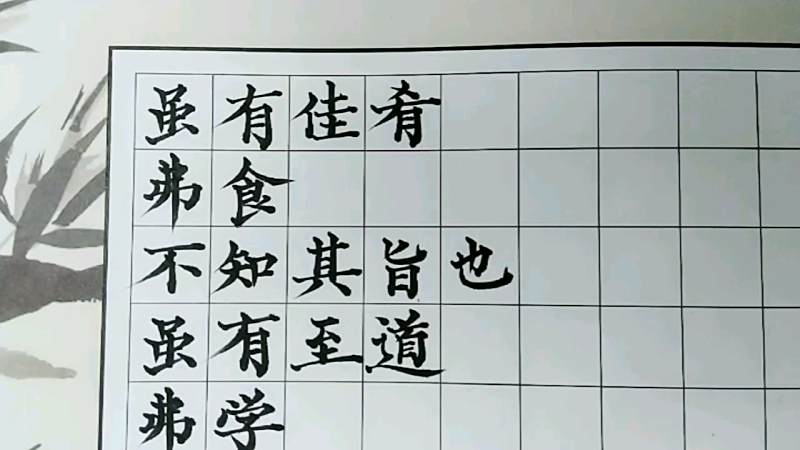 虽有佳肴
弗食
不知其旨也
虽有至道
弗学